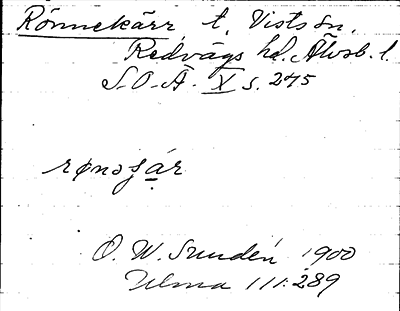 Rönnekärr, t. Vists sn.
Redvägs hd. Älvsb. l.
S.O.Ä. X s. 245
rønəʃár
O. W. Sundén 1900
Ulma 111:289